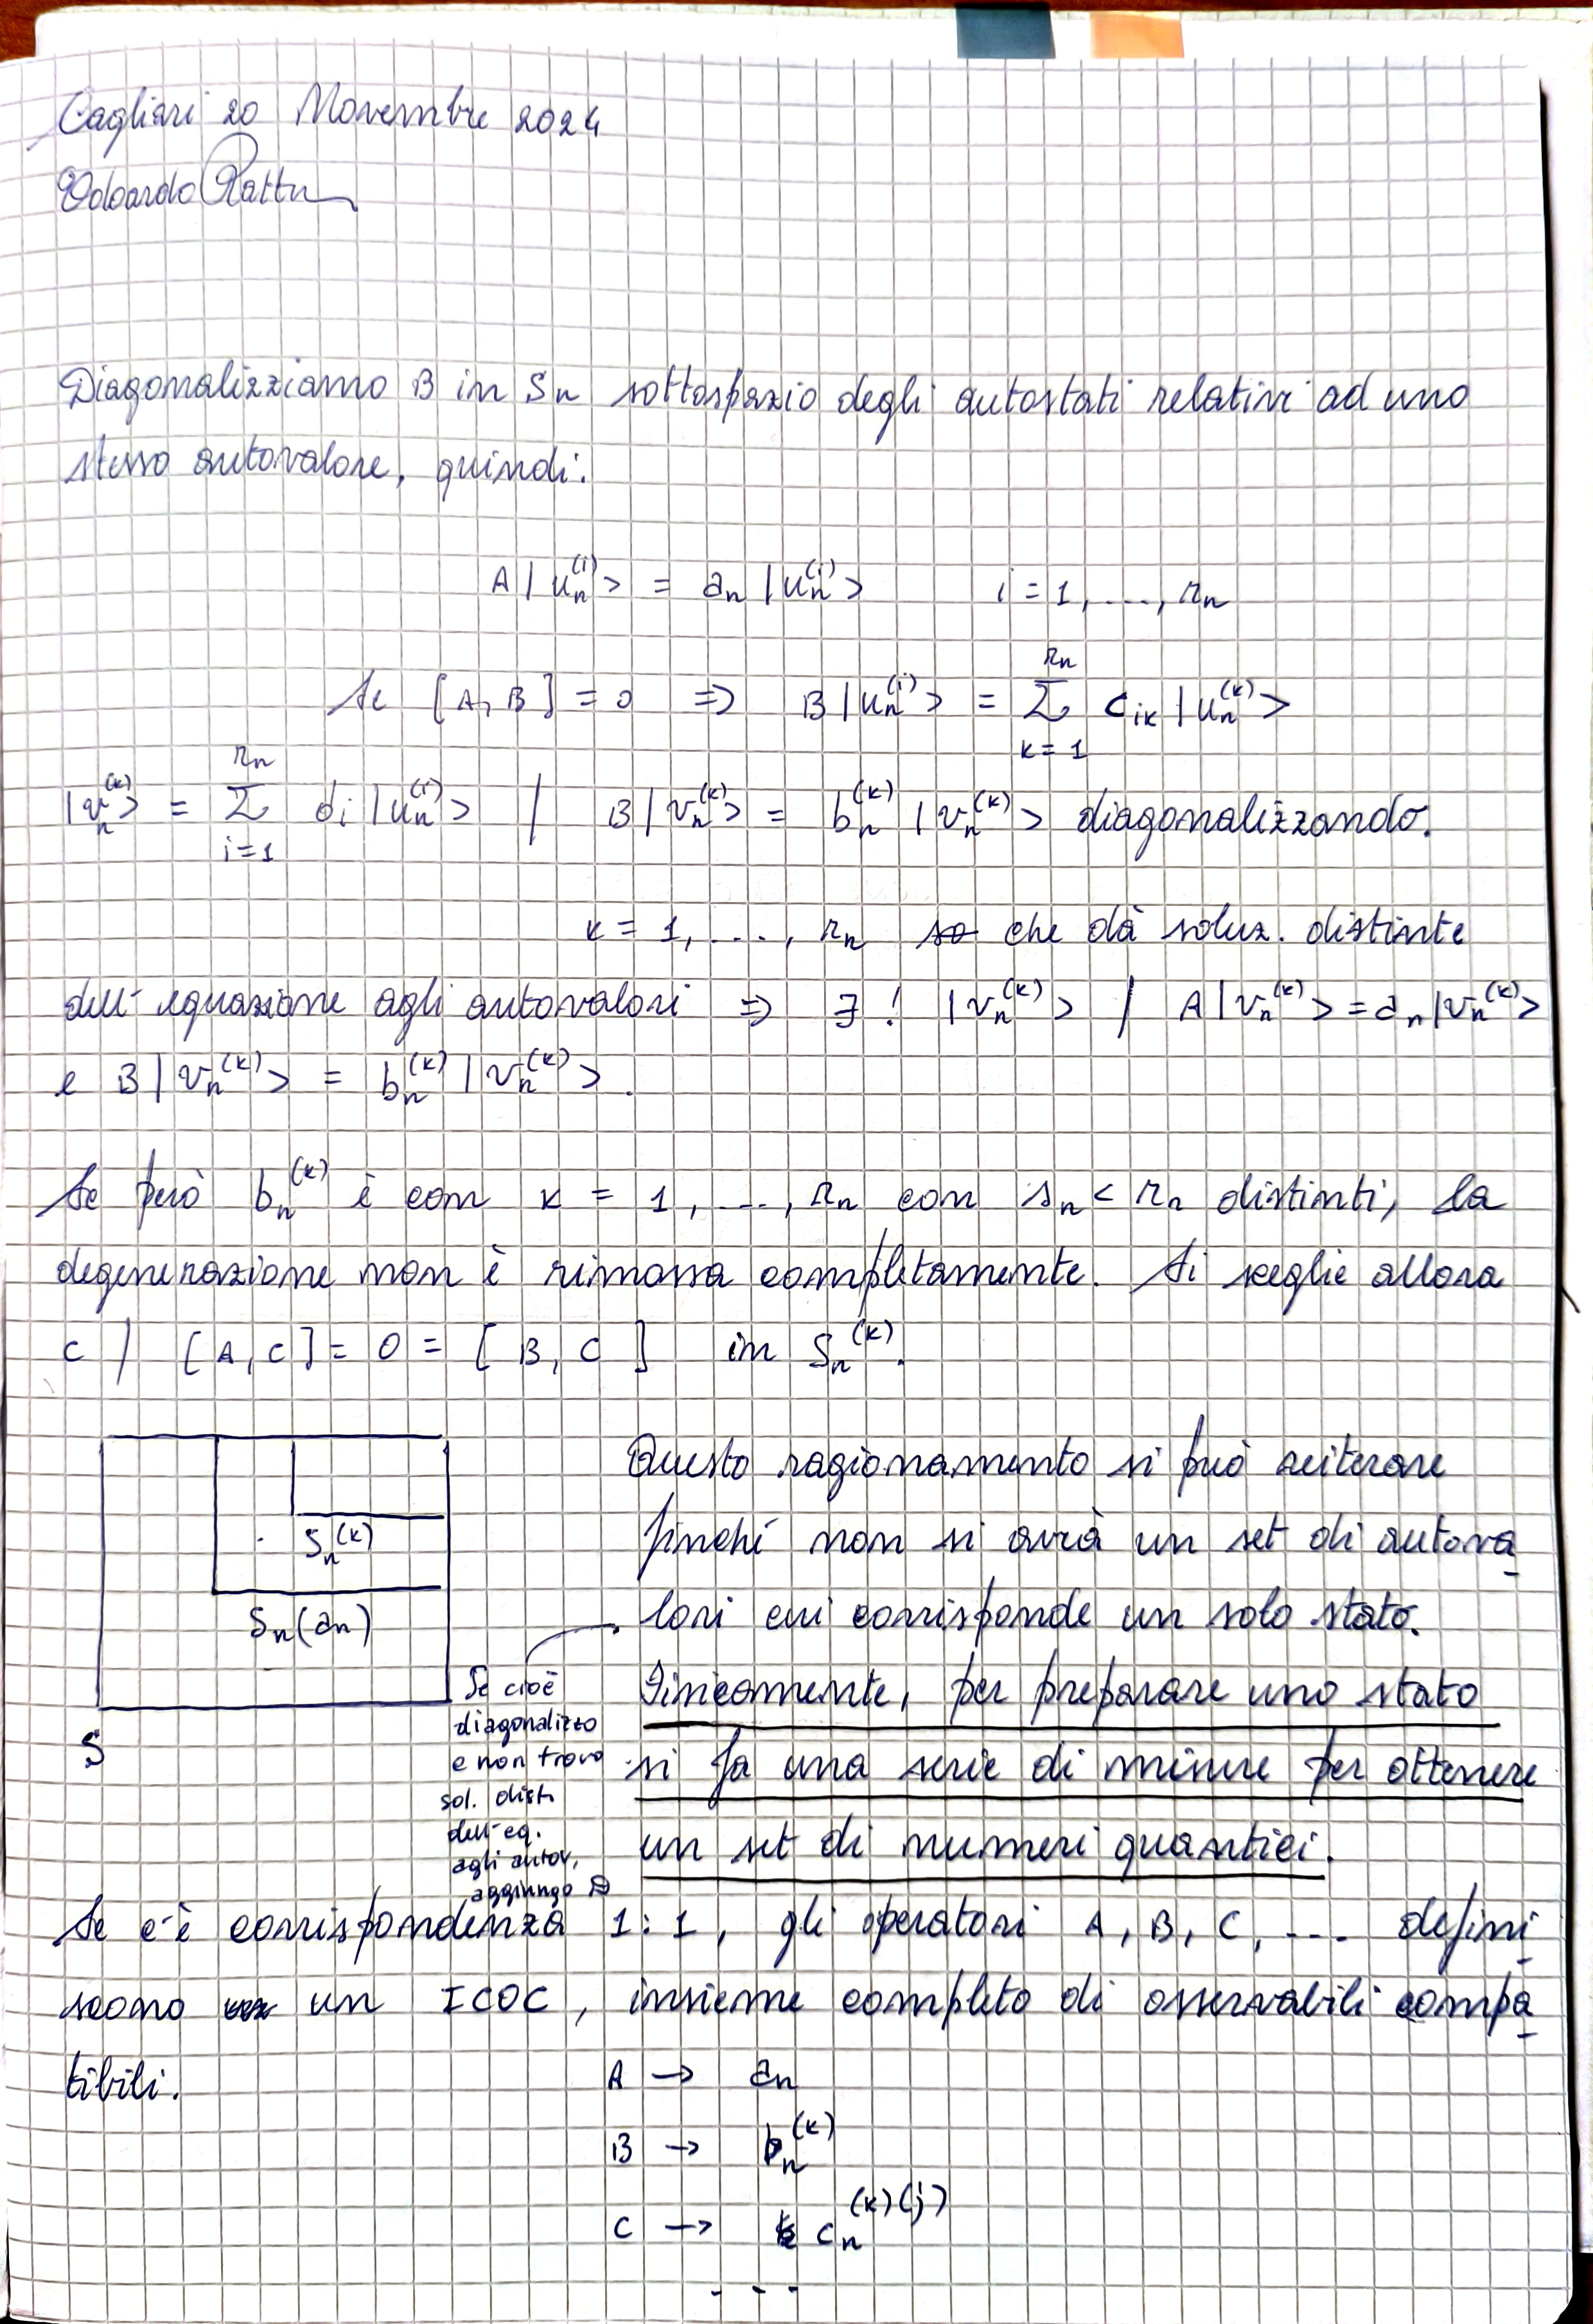 Cagliari 20 Novembre 2024
Edoardo Rattu
Diagonalizziamo B in Sn sottospazio degli autostati relativi ad uno
stesso autovalore, quindi:
A|u_n^(i)> = a_n |u_n^(i)> i = 1, ..., r_n
Se [A, B] = 0 ⇒ B|u_n^(i)> = Σ_{k=1}^{r_n} c_ik |u_n^(k)>
|v_n^(k)> = Σ_{i=1}^{r_n} d_i |u_n^(i)> / B|v_n^(k)> = b_n^(k) |v_n^(k)> diagonalizzando.
k = 1, ..., r_n che dà soluz. distinte
dell'equazione agli autovalori ⇒ ∃! |v_n^(k)> / A|v_n^(k)> = a_n|v_n^(k)>
e B|v_n^(k)> = b_n^(k) |v_n^(k)>.
Se però b_n^(k) è con k = 1, ..., r_n con s_n < r_n distinti, la
degenerazione non è rimossa completamente. Si sceglie allora
C / [A, C] = 0 = [B, C] in S_n^(k).
S_n^(k)
S_n(a_n)
S
Questo ragionamento si può reiterare
finché non si avrà un set di autova
lori cui corrisponde un solo stato.
Fisicamente, per preparare uno stato
si fa una serie di misure per ottenere
un set di numeri quantici.
Se cioè
diagonalizzo
e non trovo
sol. dist.
dell'eq.
agli autov.,
aggiungo D
Se c'è corrispondenza 1:1, gli operatori A, B, C, ... defini
scono un ICOC, insieme completo di osservabili compa
tibili.
A → a_n
B → b_n^(k)
C → c_n^(k)(j)
...